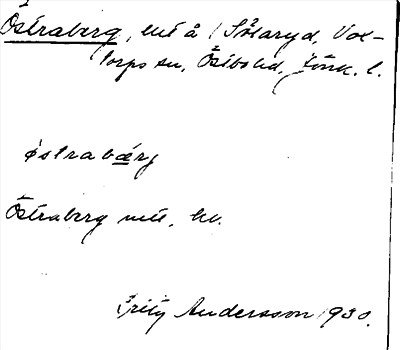 Östraberg, lht å / Sölaryd, Vox-
torps sn, Östbo hd, Jönk. l.
östrabærg
Östraberg mtt, kv.
Fritz Andersson 1930.